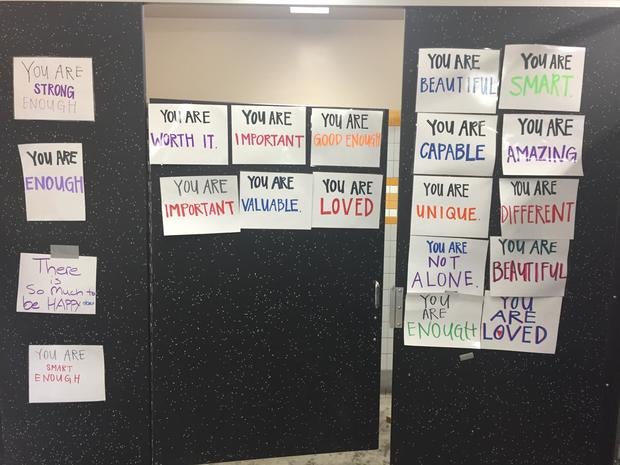 YOU ARE
STRONG
ENOUGH
YOU ARE
ENOUGH
There
is
So much to
be HAPPY
YOU ARE
SMART
ENOUGH
YOU ARE
WORTH IT.
YOU ARE
IMPORTANT
YOU ARE
GOOD ENOUGH
YOU ARE
IMPORTANT
YOU ARE
VALUABLE.
YOU ARE
LOVED
YOU ARE
BEAUTIFUL
YOU ARE
SMART.
YOU ARE
CAPABLE
YOU ARE
AMAZING
YOU ARE
UNIQUE.
YOU ARE
DIFFERENT
YOU ARE
NOT
ALONE.
YOU ARE
BEAUTIFUL
YOU
ARE
ENOUGH
YOU
ARE
LOVED